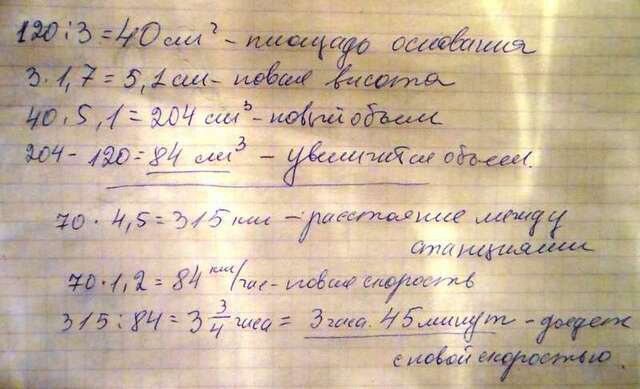 120:3=40 см² - площадь основания
3·1,7=5,1 см - новая высота
40·5,1=204 см³ - новый объем
204-120=84 см³ - увеличится объем.
70·4,5=315 км - расстояние между
станциями
70·1,2=84 км/час - новая скорость
315:84=3 3/4 часа = 3 часа 45 минут - доедет
с новой скоростью.